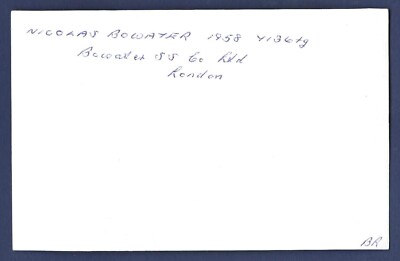 NICOLAS BOWATER 1958 7136tg
Bowater SS Co Ltd
London
BR